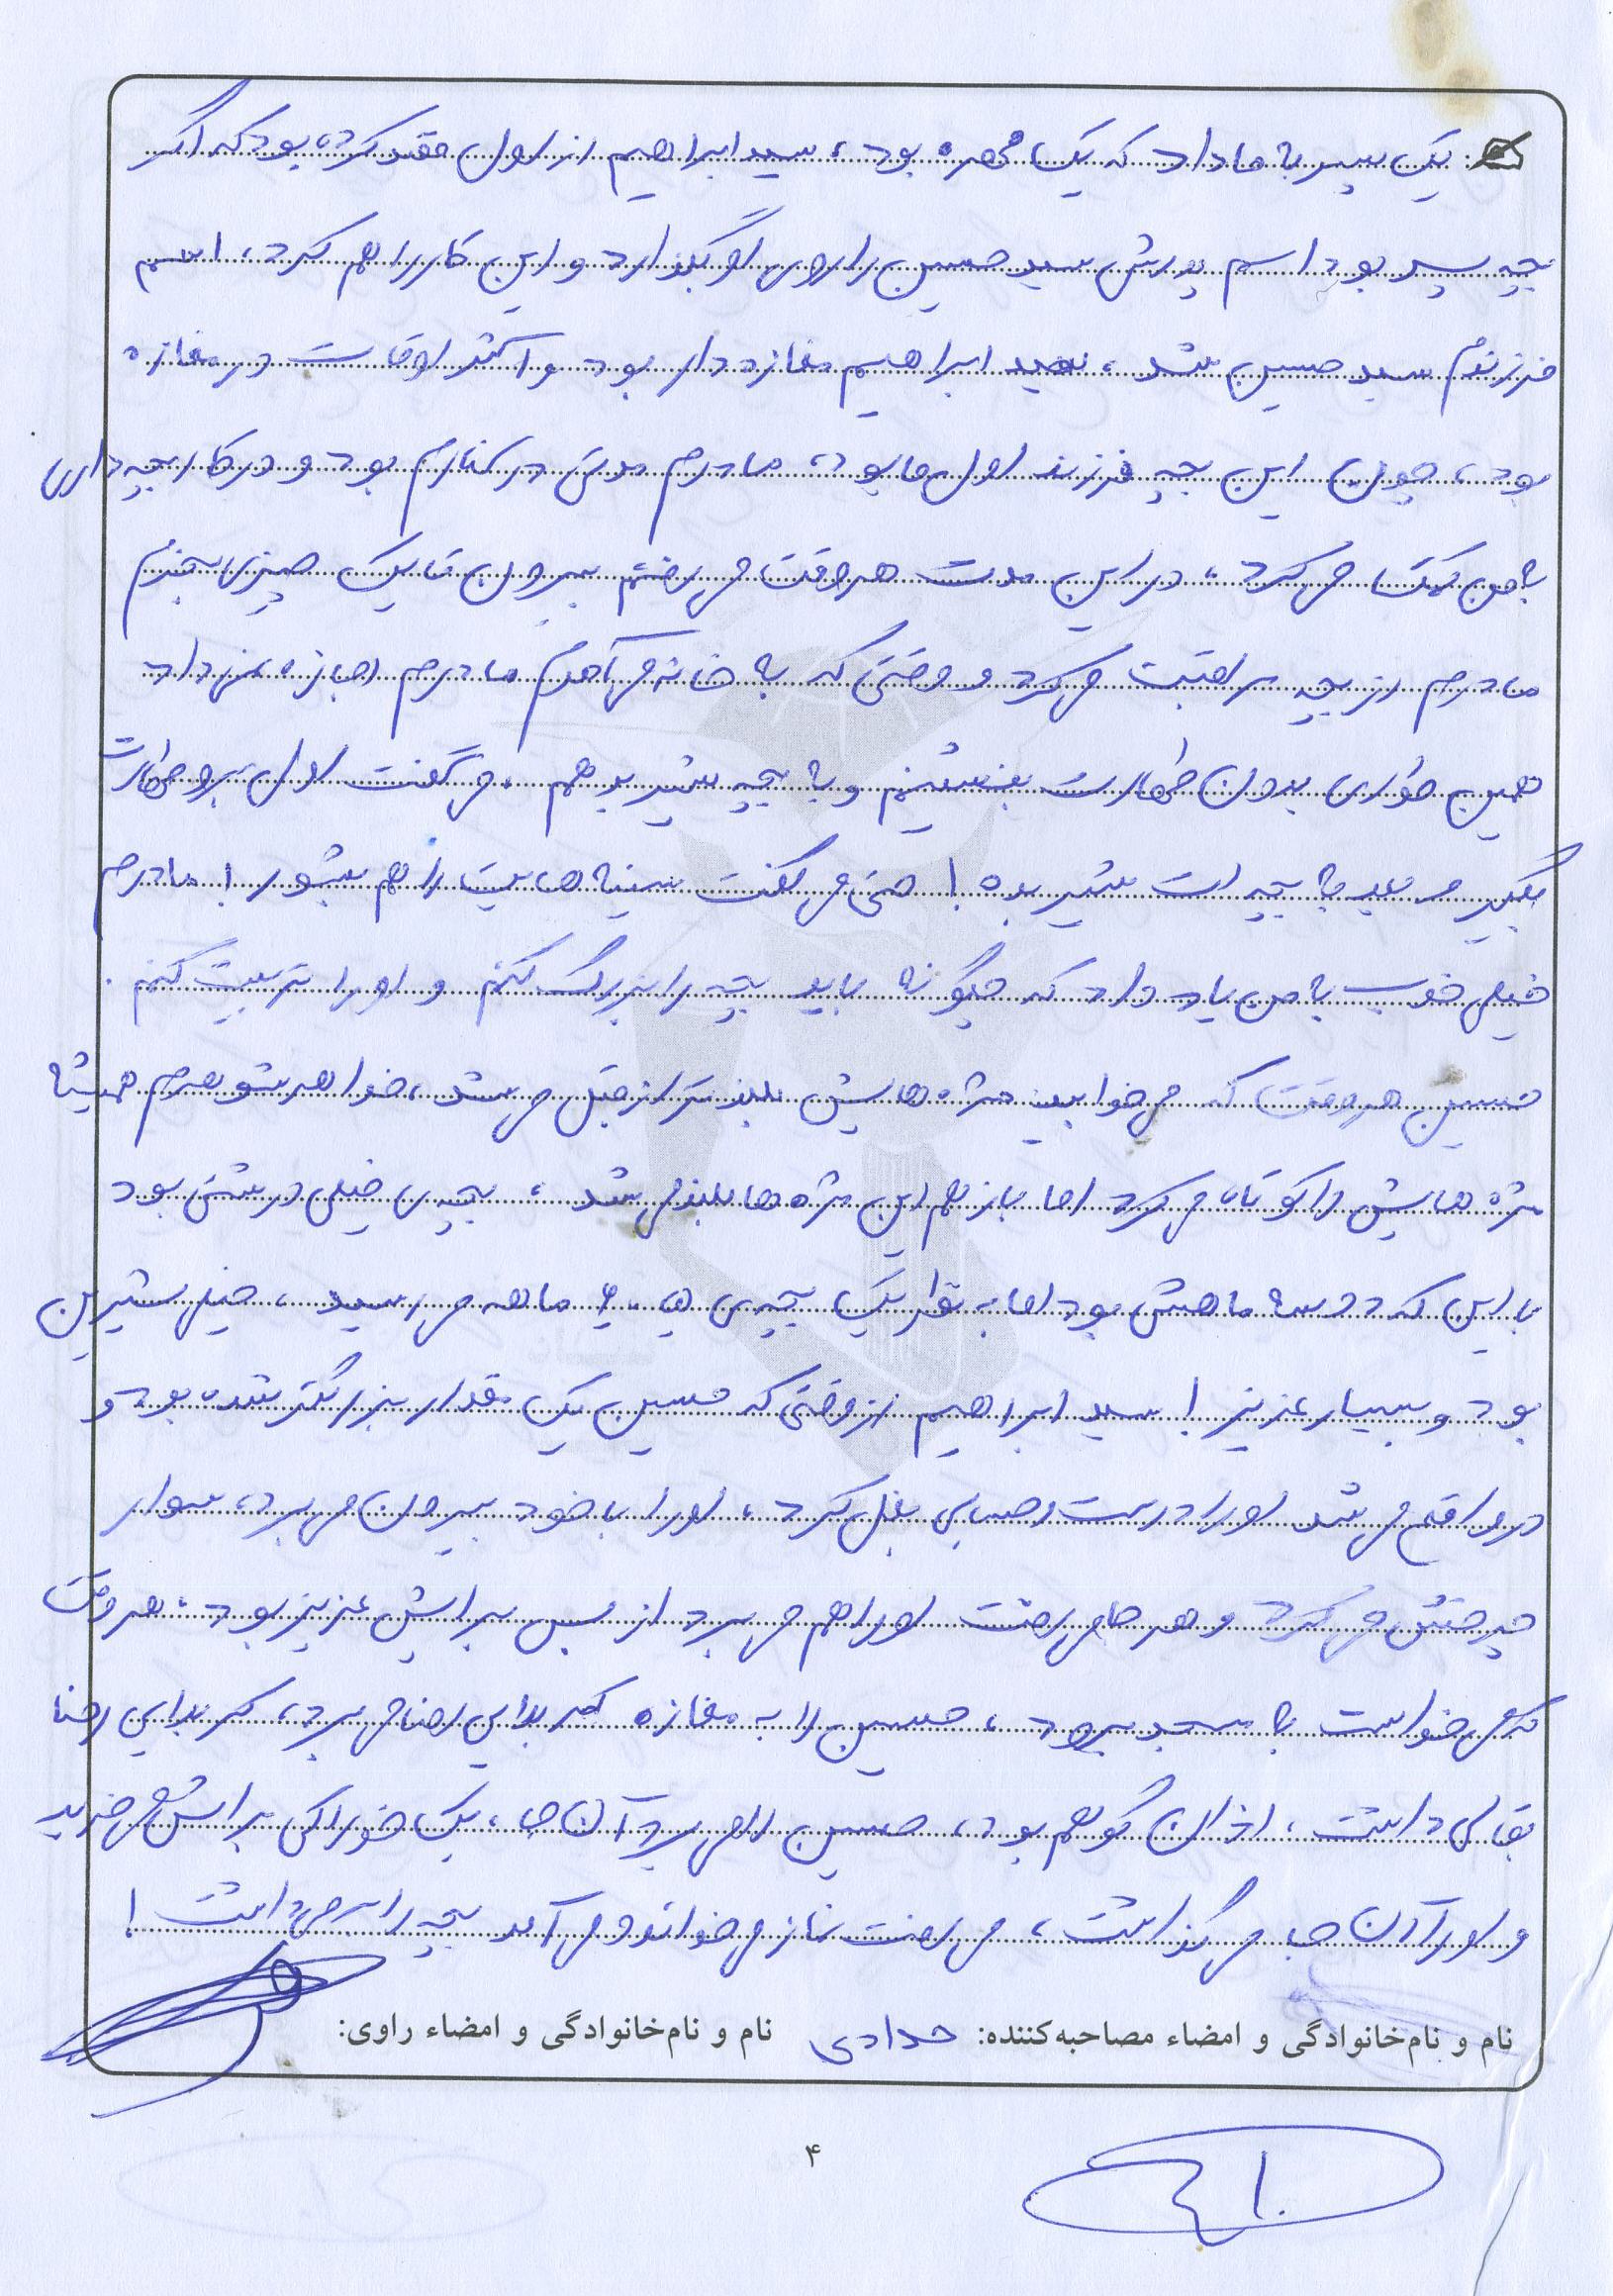 یک پسر به ما داد که یک مهره بود، سید ابراهیم از اول عقد کرده بود که اگر
بچه پسر بود اسم پدرش سید حسین را روی او بگذارد و این کار را هم کرد، اسم
فرزندم سید حسین شد، سید ابراهیم مغازه دار بود و اکثر اوقات در مغازه
بود، چون این بچه فرزند اول ما بود، مادرم مدتی در کنارم بود و در کار بچه داری
به من کمک می کرد، در این مدت هر وقت می رفتم بیرون تا یک چیزی بخرم
مادرم از بچه مراقبت می کرد و وقتی که به خانه می آمدم مادرم اجازه نمی داد
همین طوری بدون طهارت بنشینم و به بچه شیر بدهم. می گفت اول برو طهارت
بگیر و بعد به بچه ات شیر بده! حتی می گفت سینه هایت را هم بشور! مادرم
خیلی خوب به من یاد داد که چگونه باید بچه را بزرگ کنم و او را تربیت کنم.
حسین هر وقت که می خوابید مژه هایش بلندتر از قبل می شد، خواهر شوهرم همیشه
مژه هایش را کوتاه می کرد اما باز هم این مژه ها بلند می شد، بچه ی خیلی درشتی بود
با این که دو سه ماهش بود اما به نظر یک بچه ی ۶ ماهه می رسید، خیلی شیرین
بود و بسیار عزیز! سید ابراهیم از وقتی که حسین یک مقدار بزرگتر شده بود و
در واقع می شد او را درست و حسابی بغل کرد، او را با خود بیرون می برد، سوار
چرخش می کرد و هر جا می رفت او را هم می برد از بس برایش عزیز بود، هر وقت
که می خواست به مسجد برود، حسین را به مغازه کبربلایی رضا می برد، کربلایی رضا
بقالی داشت، اذان گو هم بود، حسین را می برد آن جا، یک خوراکی برایش می خرید
و او را آن جا می گذاشت، می رفت نماز می خواند و می آمد بچه را بر می داشت!
نام و نام‌خانوادگی و امضاء مصاحبه‌کننده: حدادی نام و نام‌خانوادگی و امضاء راوی:
۴